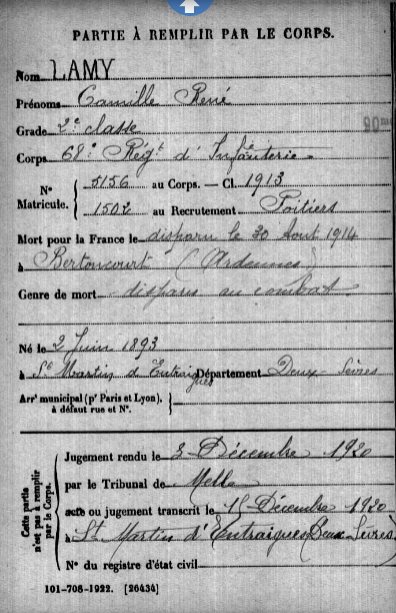 PARTIE À REMPLIR PAR LE CORPS.
Nom LAMY
Prénoms Camille René
Grade 2e classe
Corps 68e Régt d'Infanterie
No Matricule. { 5156 au Corps. — Cl. 1913
1502 au Recrutement Poitiers
Mort pour la France le disparu le 30 Aout 1914
à Bertoncourt (Ardennes)
Genre de mort disparu au combat
Né le 2 Juin 1893
à St Martin d'Entraigues Département Deux-Sèvres
Arrt municipal (pr Paris et Lyon), à défaut rue et No.
Cette partie n'est pas à remplir par le Corps.
Jugement rendu le 3 Décembre 1920
par le Tribunal de Melle
acte ou jugement transcrit le 15 Décembre 1920
à St Martin d'Entraigues (Deux-Sèvres)
No du registre d'état civil
101-708-1922. [26434]